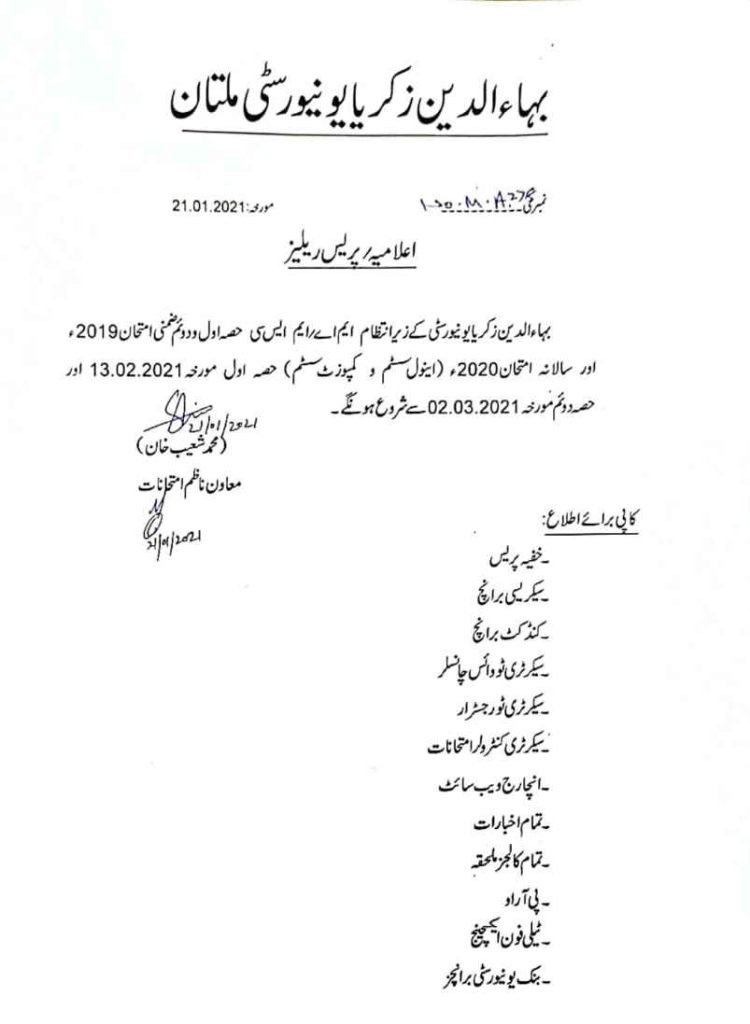 بہاءالدین زکریا یونیورسٹی ملتان
نمبری M.A.
مورخہ:21.01.2021
اعلامیہ/پریس ریلیز
بہاءالدین زکریا یونیورسٹی کے زیر انتظام ایم اے/ایم ایس سی حصہ اول و دوئم ضمنی امتحان 2019ء
اور سالانہ امتحان 2020ء (اینول سسٹم و کمپوزٹ سسٹم) حصہ اول مورخہ 13.02.2021 اور
حصہ دوئم مورخہ 02.03.2021 سے شروع ہونگے۔
21/01/2021
(محمد شعیب خان)
معاون ناظم امتحانات
21/01/2021
کاپی برائے اطلاع:
۔خفیہ پریس
۔سیکریسی برانچ
۔کنڈکٹ برانچ
۔سیکرٹری ٹو وائس چانسلر
۔سیکرٹری ٹو رجسٹرار
۔سیکرٹری کنٹرولر امتحانات
۔انچارج ویب سائٹ
۔تمام اخبارات
۔تمام کالجز ملحقہ
۔پی آر او
۔ٹیلی فون ایکسچینج
۔بنک یونیورسٹی برانچز